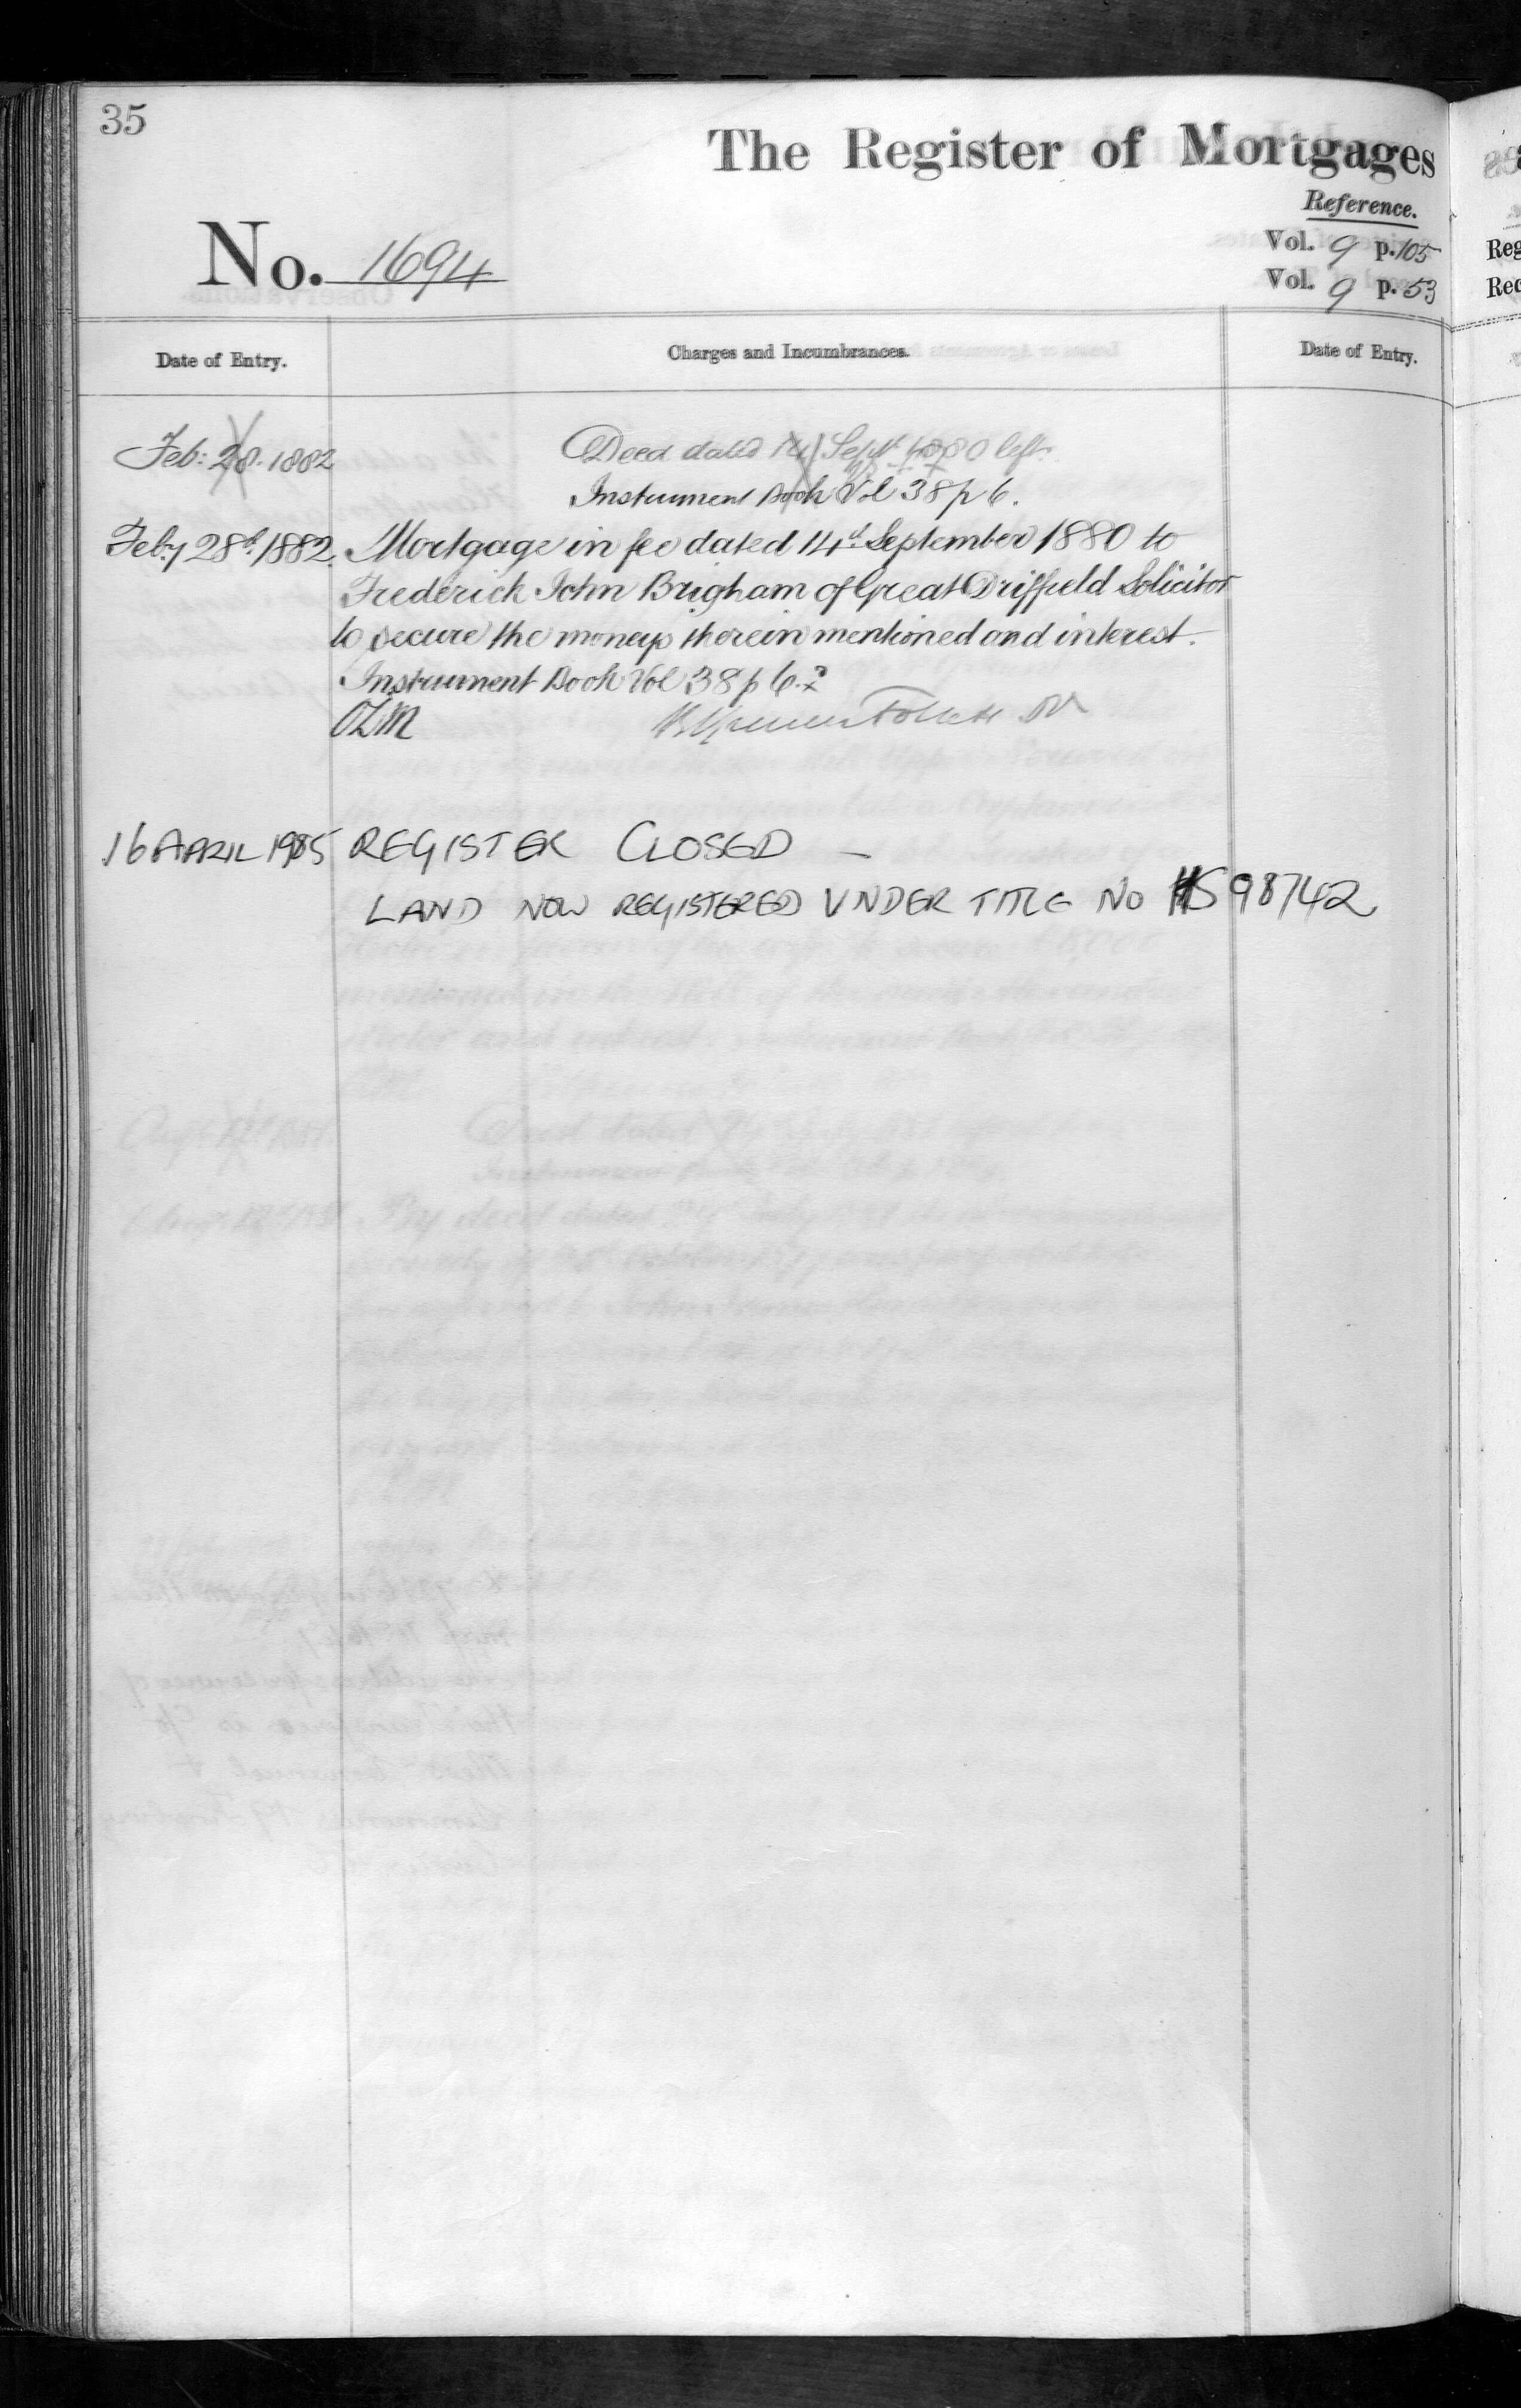 35
The Register of Mortgages
Reference.
No. 1694
Vol. 9 p. 105
Vol. 9 p. 53
Date of Entry. Charges and Incumbrances. Date of Entry.
Feb: 28. 1882 Deed dated 14 Sept 1880 left
Instrument Book Vol 38 p 6.
Feby 28th 1882. Mortgage in fee dated 14th September 1880 to
Frederick John Brigham of Great Driffield Solicitor
to secure the moneys therein mentioned and interest.
Instrument Book Vol 38 p 6.
16 APRIL 1985 REGISTER CLOSED —
LAND NOW REGISTERED UNDER TITLE NO HS 98742
Reg
Rec